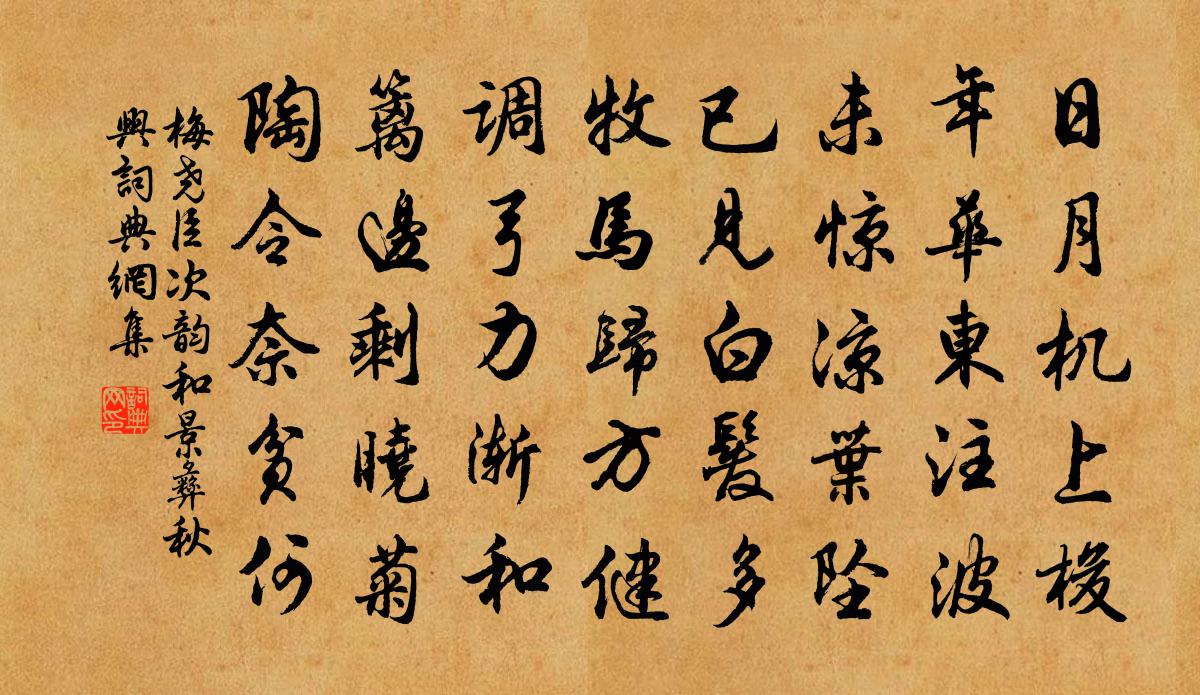 日月机上梭
年華東注波
未惊凉葉墜
已見白髮多
牧馬歸方健
调弓力渐和
籬邊剩曉菊
陶令奈贫何
梅尧臣次韵和景彝秋
興詞典網集
詞典
网印